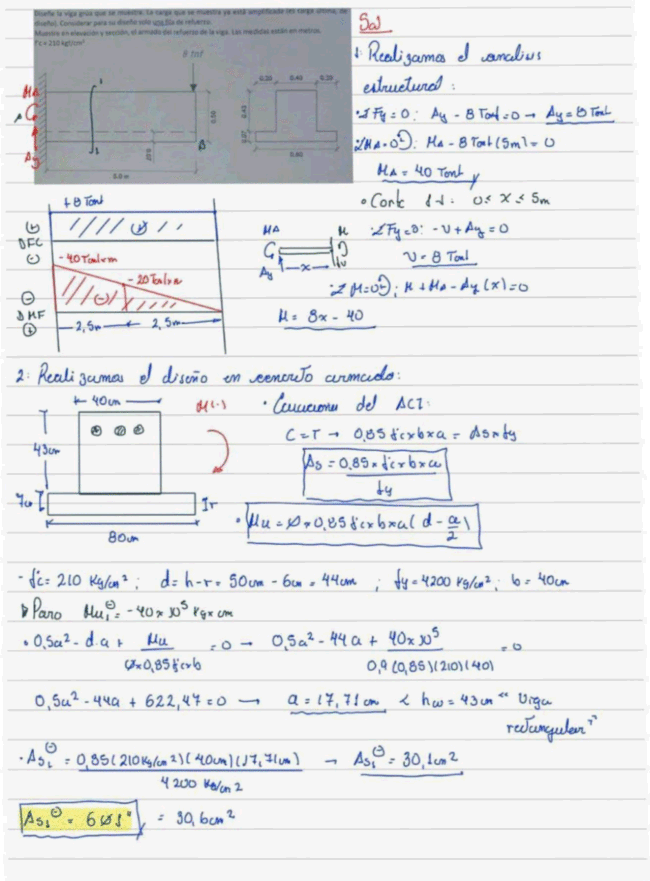 Diseñe la viga gris que se muestra. La carga que se muestra ya está amplificada (es carga última, de
diseño). Considerar para su diseño solo una fila de refuerzo.
Muestre en elevación y sección, el armado del refuerzo de la viga. Las medidas están en metros.
f'c = 210 kgf/cm²
8 tnf
MA
Ay
B
0.50
5.0 m
0.20 0.40 0.20
0.43
0.07
0.80
Sol
1: Realizamos el analisis
estructural:
· ΣFy=0: Ay - 8 Tonf=0 → Ay = 8 Tonf
ΣMA=0: MA - 8 Tonf (5m) = 0
MA = 40 Tonf
• Corte 1-1: 0 ≤ x ≤ 5m
ΣFy=0: -V + Ay = 0
V = 8 Tonf
ΣM=0: M + MA - Ay (x) = 0
M = 8x - 40
MA
M
Ay
x
V
+8 Tonf
(+)
DFC
(-)
-40 Tonf×m
-20 Tonf×m
(-)
DMF
(+)
2,5m
2,5m
2: Realizamos el diseño en concreto armado:
40cm
M(-)
43cm
7cm
r
80cm
• Ecuaciones del ACI:
C=T → 0,85 f'c × b × a = As × fy
As = 0,85 × f'c × b × a
fy
• Mu = Ø × 0,85 f'c × b × a ( d - a/2 )
- f'c = 210 Kg/cm² ; d = h - r = 50cm - 6cm = 44cm ; fy = 4200 Kg/cm² ; b = 40cm
Para Mu₁⁻ = -40 × 10⁵ Kg × cm
• 0,5a² - d.a + Mu / Ø×0,85 f'c×b = 0 → 0,5a² - 44a + 40×10⁵ / 0,9 (0,85)(210)(40) = 0
0,5a² - 44a + 622,47 = 0 → a = 17,71 cm < hw = 43cm "Viga
rectangular"
· As₁⁻ = 0,85 (210 Kg/cm²) (40cm) (17,71cm) / 4200 Kg/cm² → As₁⁻ = 30,1cm²
As₁⁻ = 6Ø1" = 30,6cm²